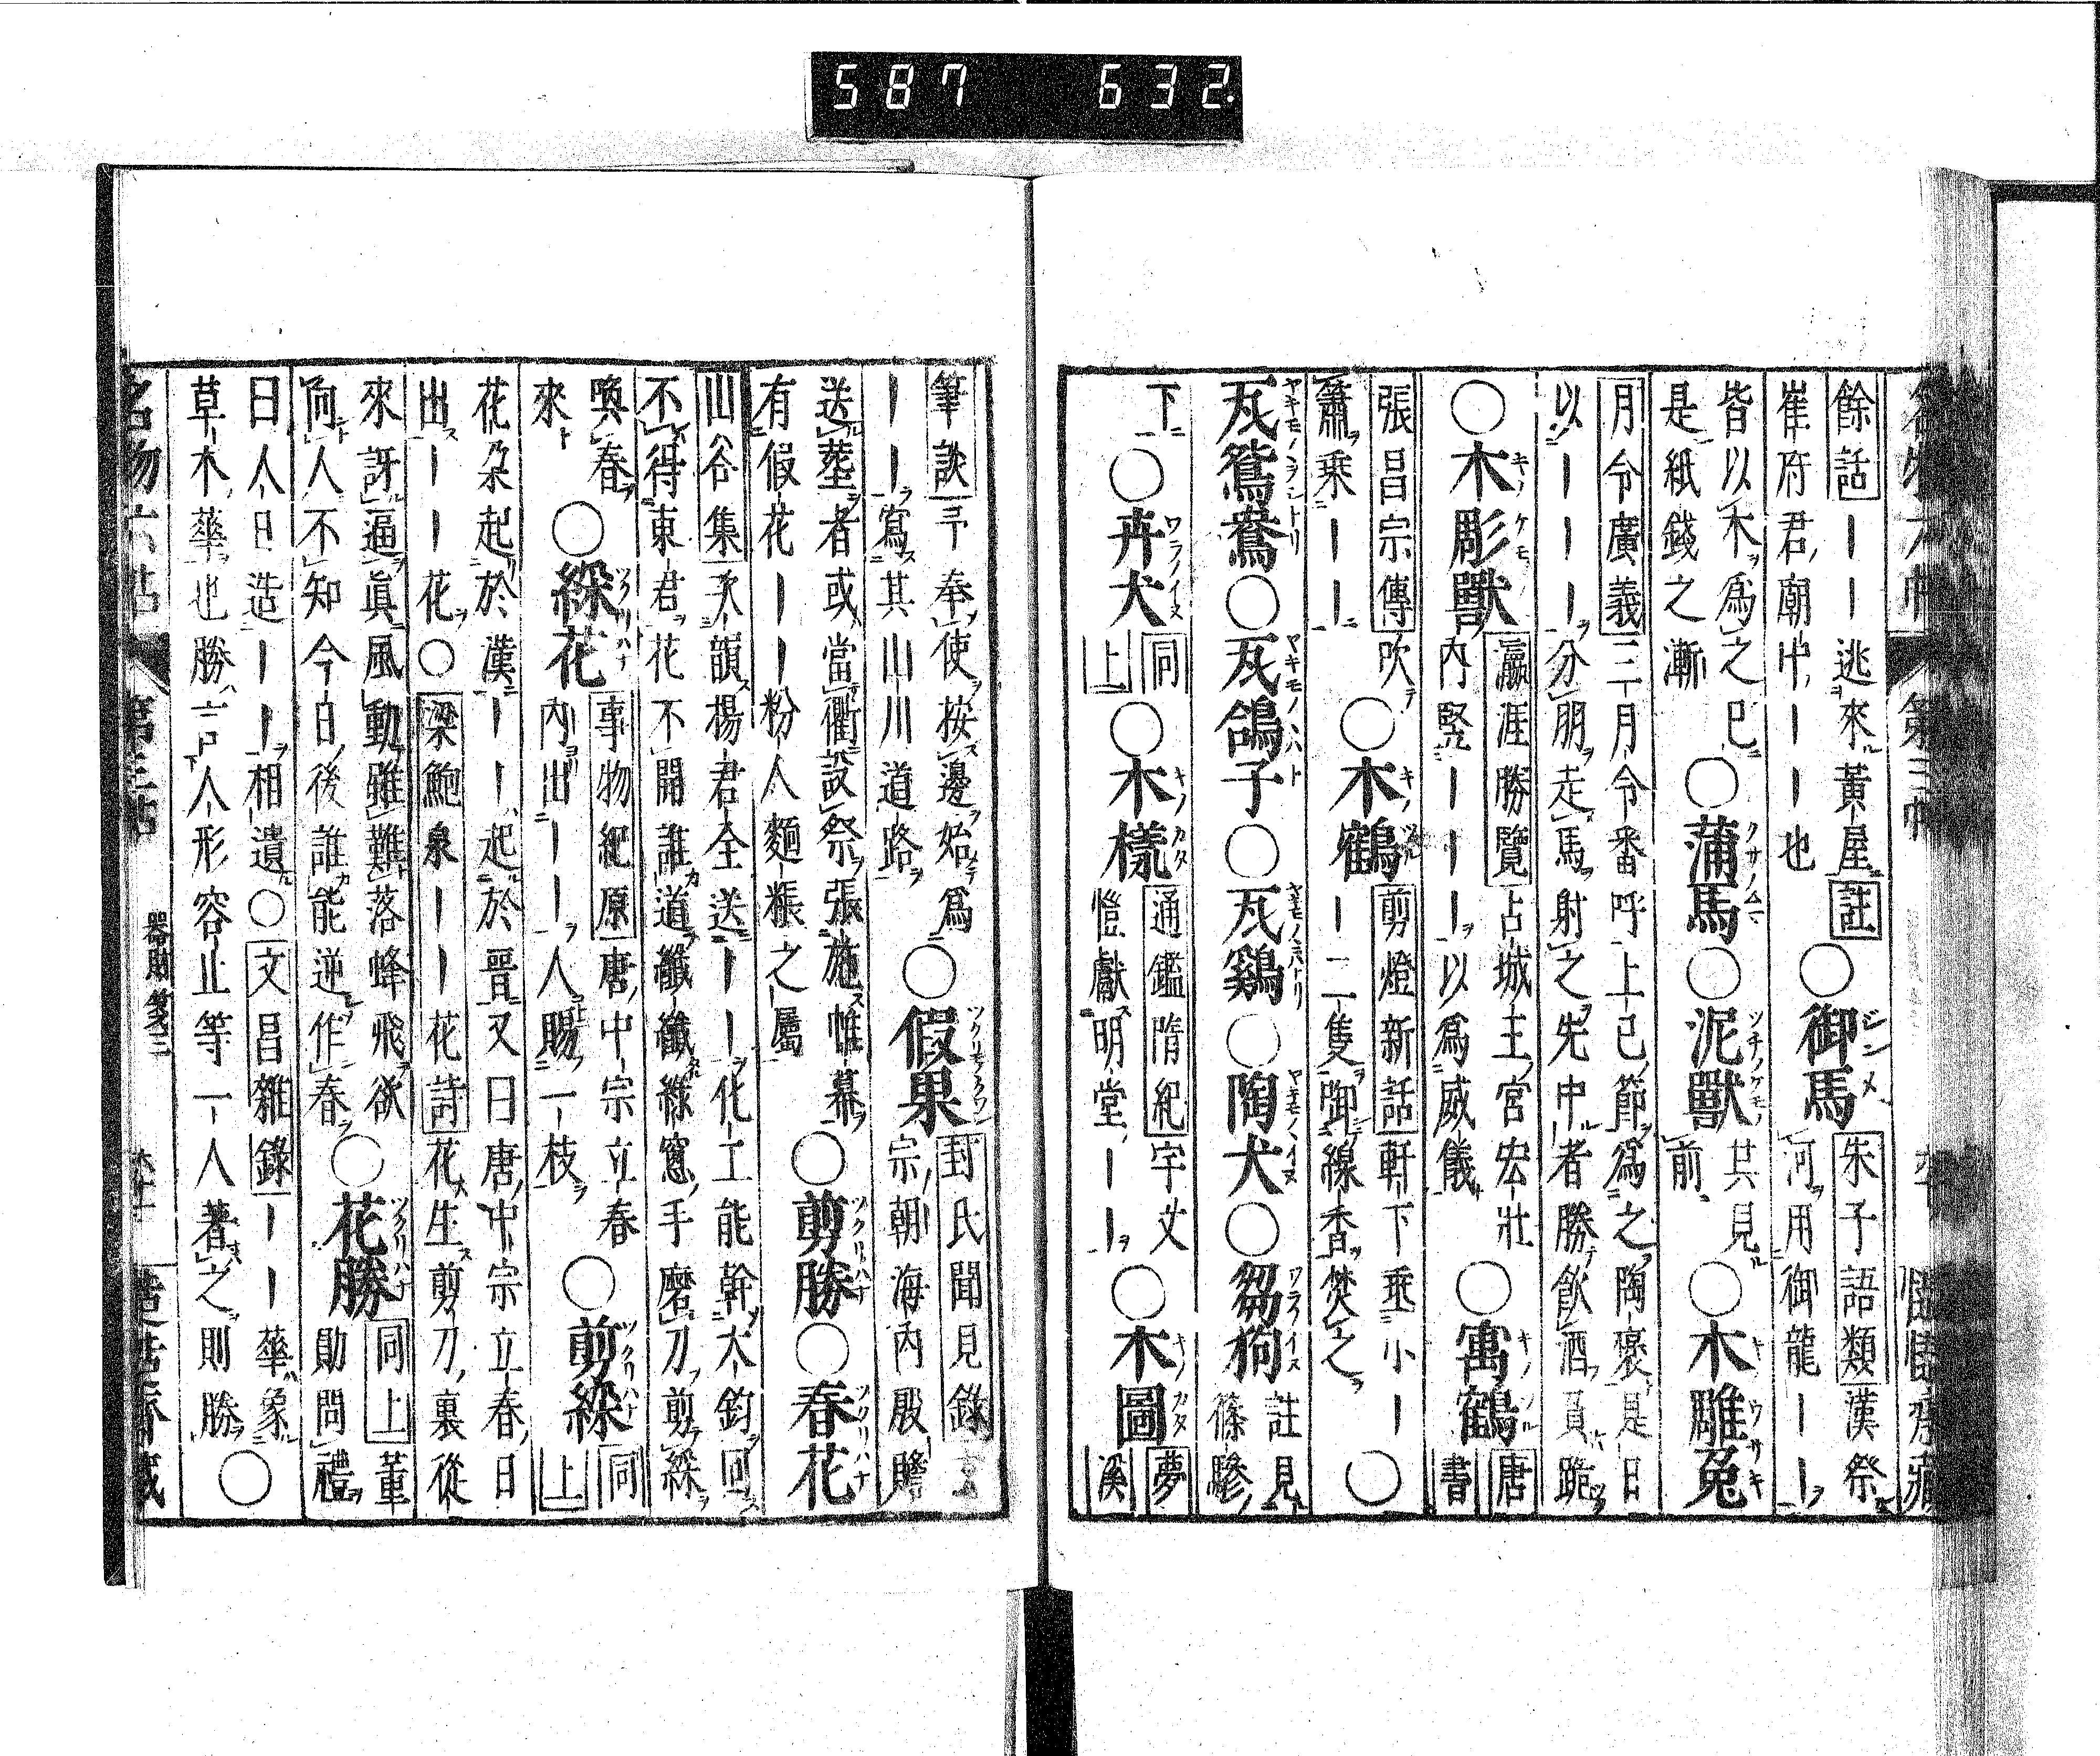 587 632.
餘話｜｜｜逃來黃屋註
崔府君廟中｜｜也
○御馬
朱子語類漢祭
河用御龍｜｜
皆以木爲之已
是紙錢之漸
○蒲馬○泥獸
其見
前
○木雕兔
月令廣義三月令番呼上巳節爲之陶褎是日
以｜｜｜分朋走馬射之先中者勝飲酒負跪
○木彫獸
瀛涯勝覽占城王宮宏壯
內竪｜｜｜以爲威儀
○寓鶴
唐
書
張昌宗傳吹
簫乘｜｜
○木鶴
剪燈新話軒下垂小｜
｜二隻御線香焚之
○
瓦鴛鴦○瓦鴿子○瓦鷄○陶犬○芻狗
註見
篠驂
下
○卉犬
同
上
○木樣
通鑑隋紀宇文
愷獻明堂｜｜
○木圖
夢
溪
筆談予奉使按邊始爲
｜｜寫其山川道路
○假果
封氏聞見錄玄
宗朝海內殷贍
送塟者或當衢設祭張施帷幕
有假花｜｜粉人麵粻之屬
○剪勝○春花
山谷集次韻楊君全送｜｜化工能幹大鈞回
不得東君花不開誰道纖纖綠窓手磨刀剪綵
喚春
來
○綵花
事物紀原唐中宗立春
內出｜｜人賜一枝
○剪綵
同
上
花朶起於漢｜｜起於晉又曰唐中宗立春日
出｜｜花○梁鮑泉｜｜花詩花生剪刀裏從
來訝逼眞風動雖難落蜂飛欲
向人不知今日後誰能逆作春
○花勝
同上董
勛問禮
日人日造｜｜相遺○文昌雜錄｜｜華象
草木華也勝言人形容止等一人著之則勝
○
名物六帖
第三帖
器財箋三